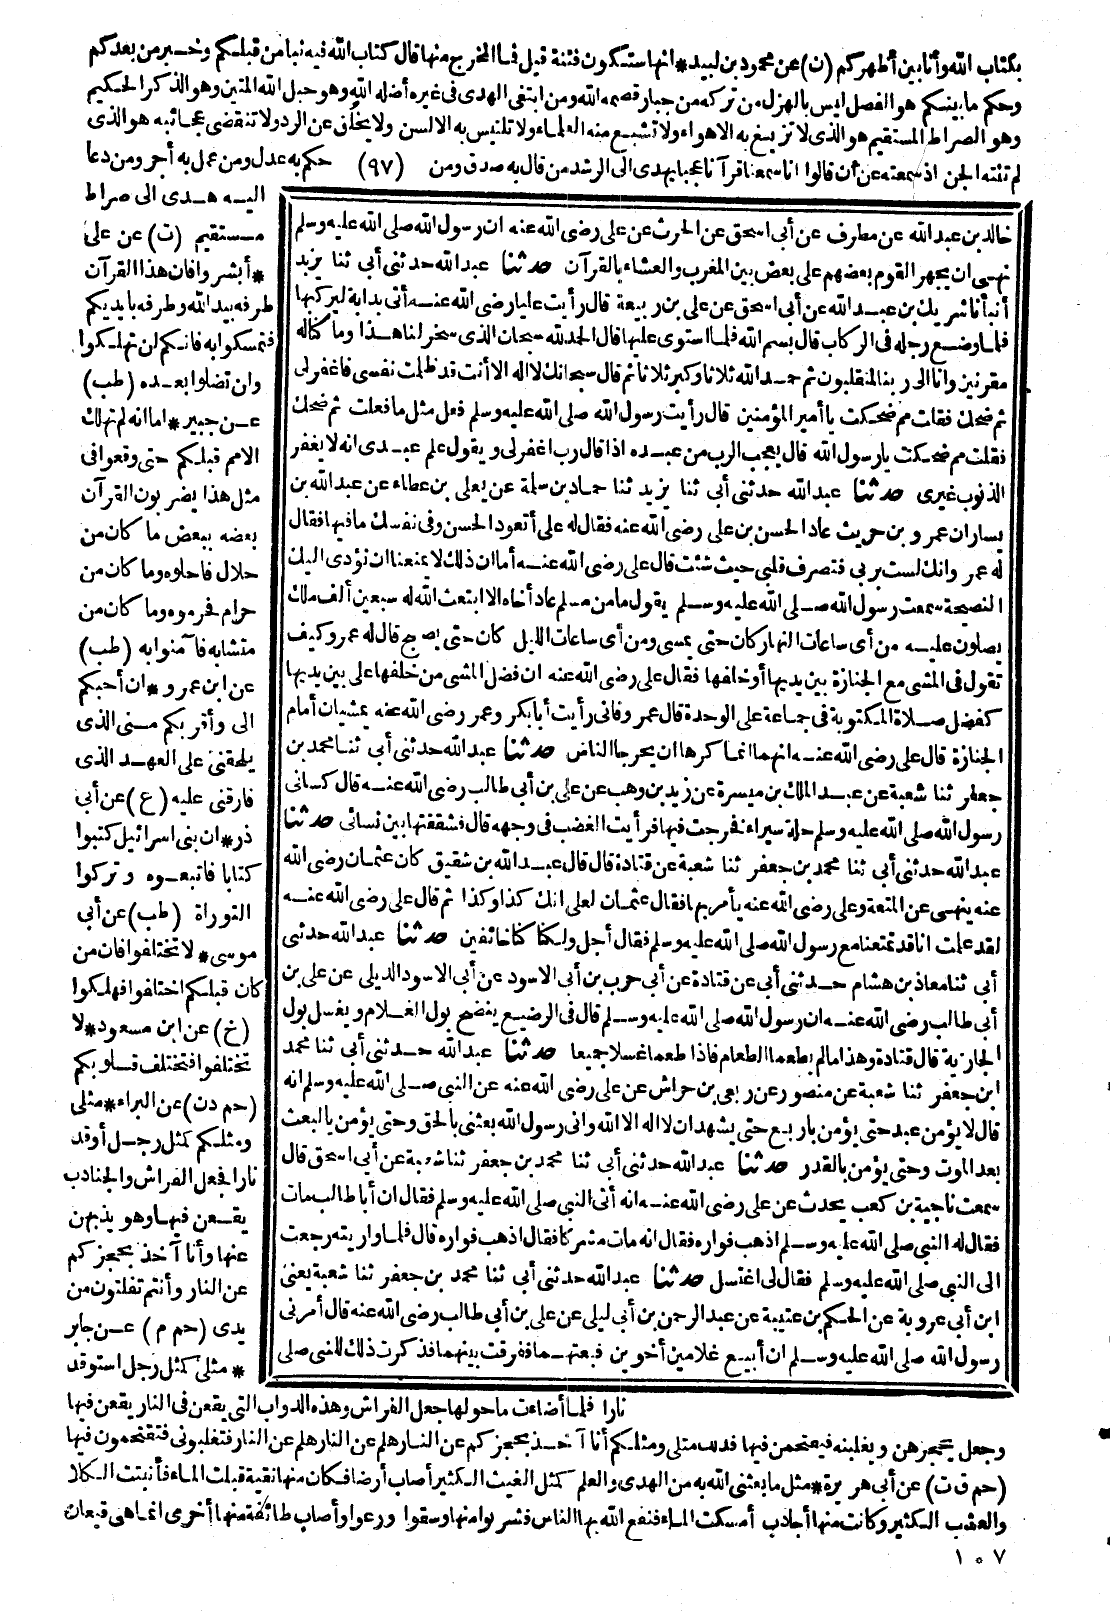 بكتاب الله وأنا بين أظهركم (ن) عن محمود بن لبيد * انها ستكون فتنة قيل فما المخرج منها قال كتاب الله فيه نبأ من قبلكم وخبر من بعدكم
وحكم ما بينكم هو الفصل ليس بالهزل من تركه من جبار قصمه الله ومن ابتغى الهدى فى غيره أضله الله وهو حبل الله المتين وهو الذكر الحكيم
وهو الصراط المستقيم هو الذى لا تزيغ به الاهواء ولا تشبع منه العلماء ولا تلتبس به الالسن ولا يخلق عن الرد ولا تنقضى عجائبه هو الذى
لم تنته الجن اذ سمعته عن أن قالوا انا سمعنا قرآنا عجبا يهدى الى الرشد من قال به صدق ومن (٩٧) حكم به عدل ومن عمل به أجر ومن دعا
اليه هدى الى صراط
مستقيم (ت) عن على
* أبشروا فان هذا القرآن
طرفه بيد الله وطرفه بايديكم
فتمسكوا به فانكم لن تهلكوا
وان تضلوا بعده (طب)
عن جبير * اما انه لم تهلك
الامم قبلكم حتى وقعوا فى
مثل هذا يضربون القرآن
بعضه ببعض ما كان من
حلال فاحلوه وما كان من
حرام فحرموه وما كان من
متشابه فآمنوا به (طب)
عن ابن عمرو * ان أحبكم
الى وأقربكم منى الذى
يلحقنى على العهد الذى
فارقنى عليه (ع) عن أبى
ذر * ان بنى اسرائيل كتبوا
كتابا فاتبعوه وتركوا
التوراة (طب) عن أبى
موسى * لا تختلفوا فان من
كان قبلكم اختلفوا فهلكوا
(خ) عن ابن مسعود * لا
تختلفوا فتختلف قلوبكم
(حم د ن) عن البراء * مثلى
ومثلكم كمثل رجل أوقد
نارا فجعل الفراش والجنادب
يقعن فيها وهو يذبهن
عنها وأنا آخذ بحجزكم
عن النار وأنتم تفلتون من
يدى (حم م) عن جابر
* مثلى كمثل رجل استوقد
خالد بن عبد الله عن مطرف عن أبى اسحق عن الحرث عن على رضى الله عنه ان رسول الله صلى الله عليه وسلم
نهى ان يجهر القوم بعضهم على بعض بين المغرب والعشاء بالقرآن حدثنا عبد الله حدثنى أبى ثنا يزيد
أنبأنا شريك بن عبد الله عن أبى اسحق عن على بن ربيعة قال رأيت عليا رضى الله عنه أتى بدابة ليركبها
فلما وضع رجله فى الركاب قال بسم الله فلما استوى عليها قال الحمد لله سبحان الذى سخر لنا هذا وما كنا له
مقرنين وانا الى ربنا لمنقلبون ثم حمد الله ثلاثا وكبر ثلاثا ثم قال سبحانك لا اله الا أنت قد ظلمت نفسى فاغفر لى
ثم ضحك فقلت مم ضحكت يا أمير المؤمنين قال رأيت رسول الله صلى الله عليه وسلم فعل مثل ما فعلت ثم ضحك
فقلت مم ضحكت يا رسول الله قال يعجب الرب من عبده اذا قال رب اغفر لى ويقول علم عبدى انه لا يغفر
الذنوب غيرى حدثنا عبد الله حدثنى أبى ثنا يزيد ثنا حماد بن سلمة عن يعلى بن عطاء عن عبد الله بن
يسار ان عمرو بن حريث عاد الحسن بن على رضى الله عنه فقال له على أتعود الحسن وفى نفسك ما فيها فقال
له عمرو انك لست بربى فتصرف قلبى حيث شئت قال على رضى الله عنه أما ان ذلك لا يمنعنا ان نؤدى اليك
النصيحة سمعت رسول الله صلى الله عليه وسلم يقول ما من مسلم عاد أخاه الا ابتعث الله له سبعين ألف ملك
يصلون عليه من أى ساعات النهار كان حتى يمسى ومن أى ساعات الليل كان حتى يصبح قال له عمرو كيف
تقول فى المشى مع الجنازة بين يديها أو خلفها فقال على رضى الله عنه ان فضل المشى من خلفها على بين يديها
كفضل صلاة المكتوبة فى جماعة على الوحدة قال عمرو فانى رأيت أبا بكر وعمر رضى الله عنه يمشيان أمام
الجنازة قال على رضى الله عنه انهما انما كرها ان يحرجا الناس حدثنا عبد الله حدثنى أبى ثنا محمد بن
جعفر ثنا شعبة عن عبد الملك بن ميسرة عن زيد بن وهب عن على بن أبى طالب رضى الله عنه قال كسانى
رسول الله صلى الله عليه وسلم حلة سيراء فخرجت فيها فرأيت الغضب فى وجهه قال فشققتها بين نسائى حدثنا
عبد الله حدثنى أبى ثنا محمد بن جعفر ثنا شعبة عن قتادة قال قال عبد الله بن شقيق كان عثمان رضى الله
عنه ينهى عن المتعة وعلى رضى الله عنه يأمر بها فقال عثمان لعلى انك كذا وكذا ثم قال على رضى الله عنه
لقد علمت انا قد تمتعنا مع رسول الله صلى الله عليه وسلم فقال أجل ولكنا كنا خائفين حدثنا عبد الله حدثنى
أبى ثنا معاذ بن هشام حدثنى أبى عن قتادة عن أبى حرب بن أبى الاسود عن أبى الاسود الديلى عن على بن
أبى طالب رضى الله عنه ان رسول الله صلى الله عليه وسلم قال فى الرضيع ينضح بول الغلام ويغسل بول
الجارية قال قتادة وهذا ما لم يطعما الطعام فاذا طعما غسلا جميعا حدثنا عبد الله حدثنى أبى ثنا محمد
ابن جعفر ثنا شعبة عن منصور عن ربعى بن حراش عن على رضى الله عنه عن النبى صلى الله عليه وسلم انه
قال لا يؤمن عبد حتى يؤمن باربع حتى يشهد ان لا اله الا الله وانى رسول الله بعثنى بالحق وحتى يؤمن بالبعث
بعد الموت وحتى يؤمن بالقدر حدثنا عبد الله حدثنى أبى ثنا محمد بن جعفر ثنا شعبة عن أبى اسحق قال
سمعت ناجية بن كعب يحدث عن على رضى الله عنه انه أتى النبى صلى الله عليه وسلم فقال ان أبا طالب مات
فقال له النبى صلى الله عليه وسلم اذهب فواره فقال انه مات مشركا فقال اذهب فواره قال فلما واريته رجعت
الى النبى صلى الله عليه وسلم فقال لى اغتسل حدثنا عبد الله حدثنى أبى ثنا محمد بن جعفر ثنا شعبة يعنى
ابن أبى عروبة عن الحكم بن عتيبة عن عبد الرحمن بن أبى ليلى عن على بن أبى طالب رضى الله عنه قال أمرنى
رسول الله صلى الله عليه وسلم ان أبيع غلامين أخوين فبعتهما ففرقت بينهما فذكرت ذلك للنبى صلى
نارا فلما أضاءت ما حولها جعل الفراش وهذه الدواب التى يقعن فى النار يقعن فيها
وجعل يحجزهن ويغلبنه فيقتحمن فيها فذلك مثلى ومثلكم أنا آخذ بحجزكم عن النار هلم عن النار هلم عن النار فتغلبونى فتقتحمون فيها
(حم ق ت) عن أبى هريرة * مثل ما بعثنى الله به من الهدى والعلم كمثل الغيث الكثير أصاب أرضا فكان منها نقية قبلت الماء فأنبتت الكلا
والعشب الكثير وكانت منها أجادب أمسكت الماء فنفع الله بها الناس فشربوا منها وسقوا وزرعوا وأصاب طائفة منها أخرى انما هى قيعان
١٠٧